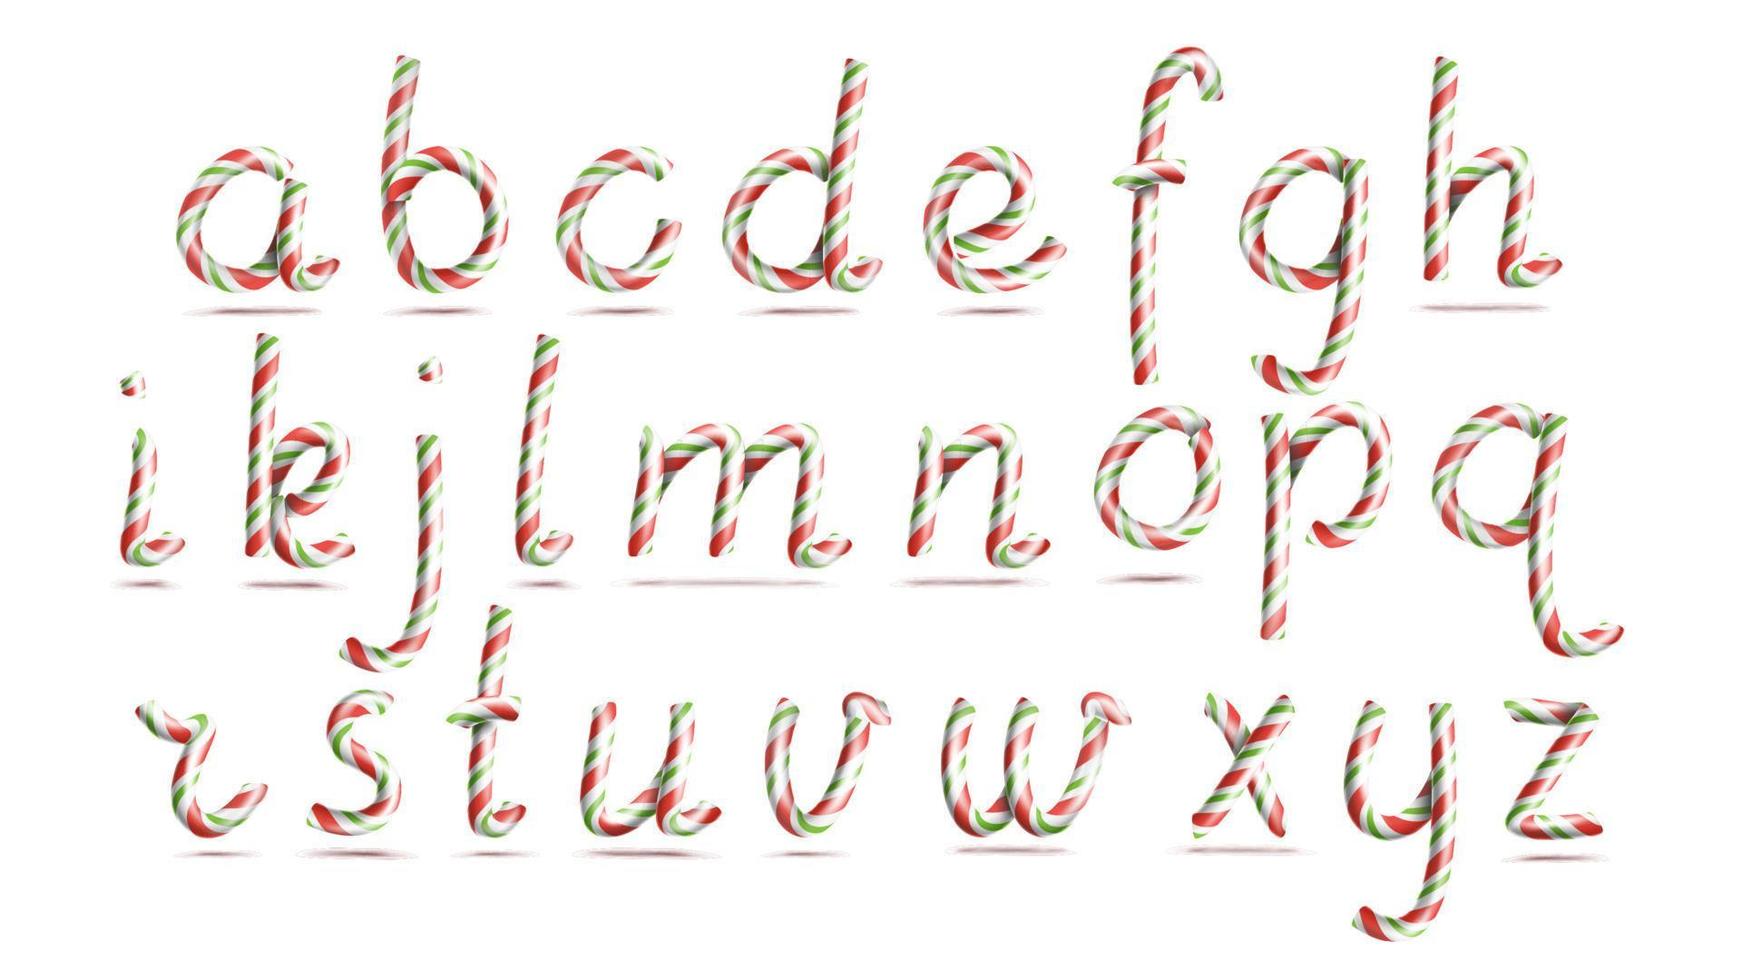 a b c d e f g h
i k j l m n o p q
r s t u v w x y z